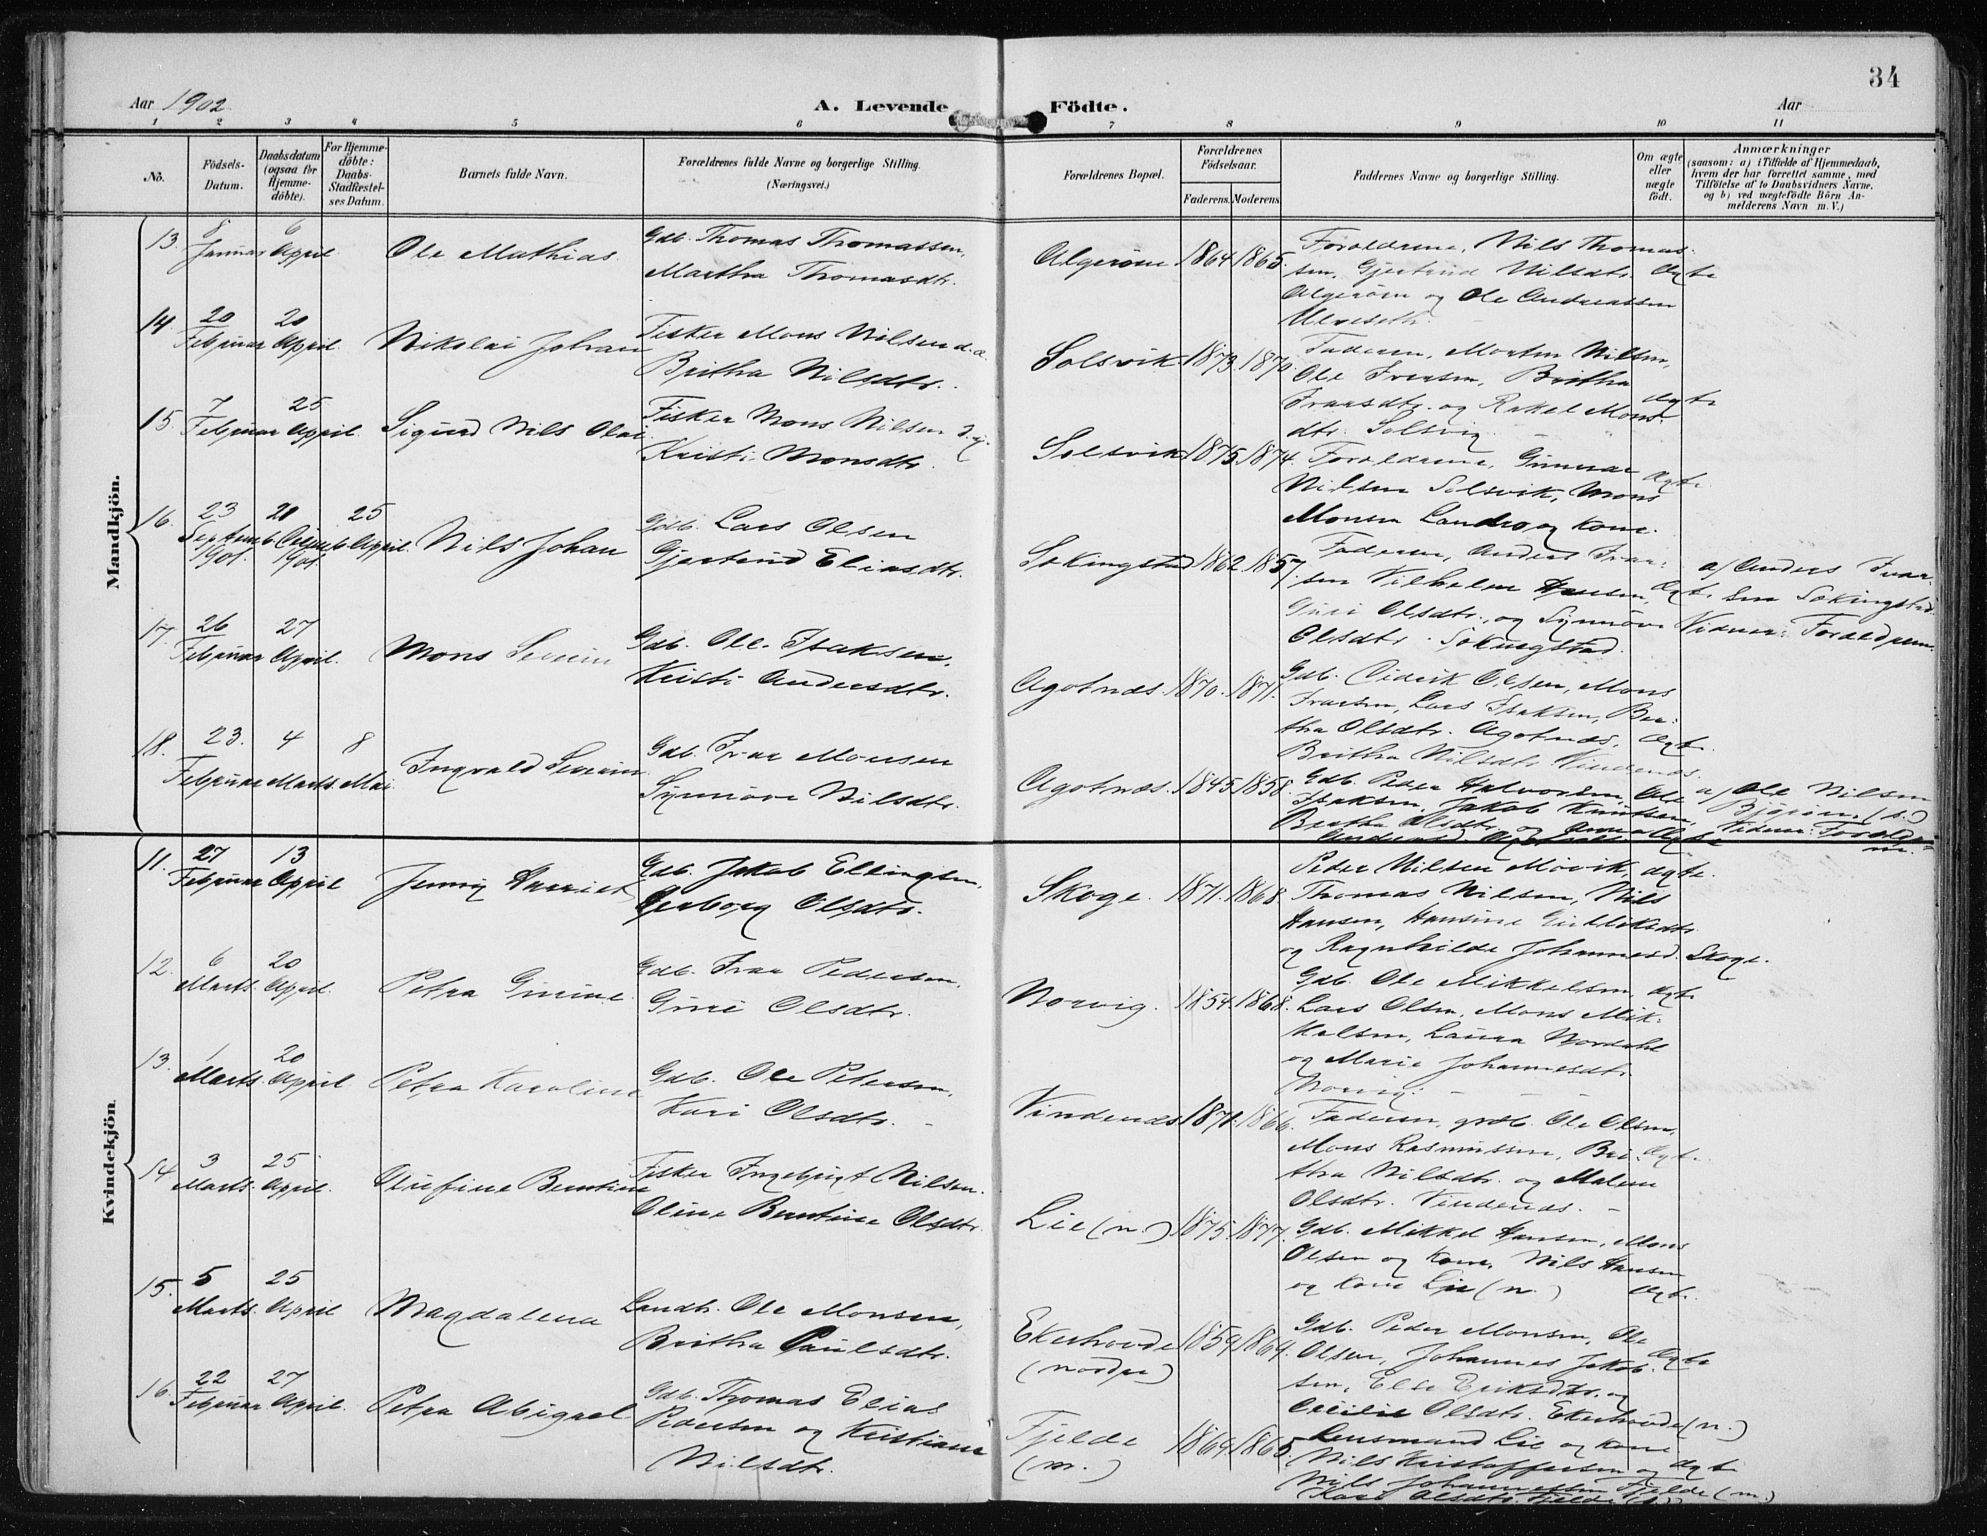 34
Aar 1902.
A. Levende Födte.
Aar
1 2 3 4 5 6 7 8 9 10 11
No.
Födsels-Datum.
Daabsdatum (ogsaa for Hjemme-döbte).
For Hjemme-döbte: Daabs-Stadfæstel-ses Datum.
Barnets fulde Navn.
Forældrenes fulde Navne og borgerlige Stilling.
(Næringsvei.)
Forældrenes Bopæl.
Forældrenes Födselsaar.
Faderens. Moderens.
Faddernes Navne og borgerlige Stilling.
Om ægte eller uægte födt.
Anmærkninger
(saasom: a) i Tilfælde af Hjemmedaab,
hvem der har forrettet samme, med
Tilföielse af to Daabsvidners Navne,
og b) ved uægtefödte Börn An-
melderens Navn m. V.)
Mandkjön.
13. 8 Januar 6 April. Ole Mathias.
Gdb. Thomas Thomassen,
Martha Thomasdtr.
Algeröen 1864. 1865.
Forældrene, Nils Thomas-
sen, Gjertrud Nilsdtr. Ægte
Algeröen og Ole Andreassen
14. 20 Februar 20 April. Nikolai Johan
Fisker Mons Nilsen d.æ.
Britha Nilsdtr.
Solsvik. 1873. 1870.
Faderen, Morten Nilsen,
Ole Iversen, Britha
Ivarsdtr. og Rakel Mons- Ægte
dtr. Solsvig.
15. 7 Februar 25 April. Sigurd Nils Olai
Fisker Mons Nilsen d.y.
Kristi Monsdtr.
Solsvik 1875. 1874.
Forældrene, Gunnar Ægte.
Nilsen Solsvik, Mons
Monsen Landro og Kone.
16. 23 Septemb. 1901. 20 1901 25 April. Nils Johan
Gdb. Lars Olsen
Gjertrud Eliasdtr.
Sekingstad 1862. 1857.
Faderen, Anders Ivar-
sen Vilhelm Hansen, Ægte
Guri Olsdtr., og Synnöve
Olsdtr. Sekingstad.
a/ Anders Ivar-
sen Sekingstad.
Vidner: Forældrene.
17. 26 Februar 27 April. Mons Severin
Gdb. Ole Isaksen,
Kristi Andersdtr.
Agotnæs. 1870. 1871.
Gdb. Didrik Olsen, Mons
Ivarsen, Lars Isaksen, Bri-
tha Olsdtr. Agotnæs, Ægte.
Britha Nilsdtr Vindenæs.
18. 23. Februar 4 Marts. 8 Mai Ingvald Severin
Gdb. Ivar Monsen
Synnöve Nilsdtr.
Agotnæs. 1845. 1858.
Gdb. Peder Halvorsen, Ole
Isaksen, Jakob Knutsen,
Britha Olsdtr. og Anna
a/ Ole Nilsen
Björöen (s.)
Vidner: Forældre-
ne.
Kvindekjön.
11. 27 Februar 13 April Jenny Harriet
Gdb. Jakob Ellingsen,
Gerborg Olsdtr.
Skoge. 1871. 1868.
Peder Nilsen Movik, Ægte.
Thomas Nilsen, Nils
Hansen, Hansine
og Ragnhilde Johannesd. Skoge.
12. 6 Marts. 20 April. Petra Gurine.
Gdb. Ivar Pedersen,
Guri Olsdtr.
Norvig. 1854. 1868.
Gdb. Ole Mikkelsen, Ægte
Lars Olsen, Mons Mik-
kelsen, Laura Nordahl
og Marie Johannesdtr.
Norvig.
13. 1 Marts. 20 April Petra Karoline
Gdb. Ole Petersen,
Kari Olsdtr.
Vindenæs 1871. 1866.
Faderen, grdb. Ole Olsen,
Mons Rasmussen, Bri- Ægte.
tha Nilsdtr. og Malene
Olsdtr. Vindenæs.
14. 3 Marts. 25 April. Olufine Berntine
Fisker Ingebrigt Nilsen.
Oline Berntine Olsdtr.
Lie (n.) 1875. 1877.
Gdb. Mikkel Hansen, Mons
Olsen og Kone, Nils Hansen
og Kone Lie (n.) Ægte.
15. 5 Marts. 25 April Magdalena
Landh. Ole Monsen,
Britha Paulsdtr.
Ekerhovde (nordre) 1859. 1869.
Gdb. Peder Monsen, Ole
Olsen, Johannes Jakob- Ægte
sen, Else Eriksdtr. og
Cecilie Olsdtr. Ekerhovde (n.)
16. 22 Februar 27 April. Petra Abigael
Gdb. Thomas Elias
Pedersen og Kristiane
Nilsdtr.
Fjelde (m.) 1869. 1865.
Lensmand Lie og Kone
Nils Kristoffersen og Ægte
Nils Johannessen Fjelde (m.)